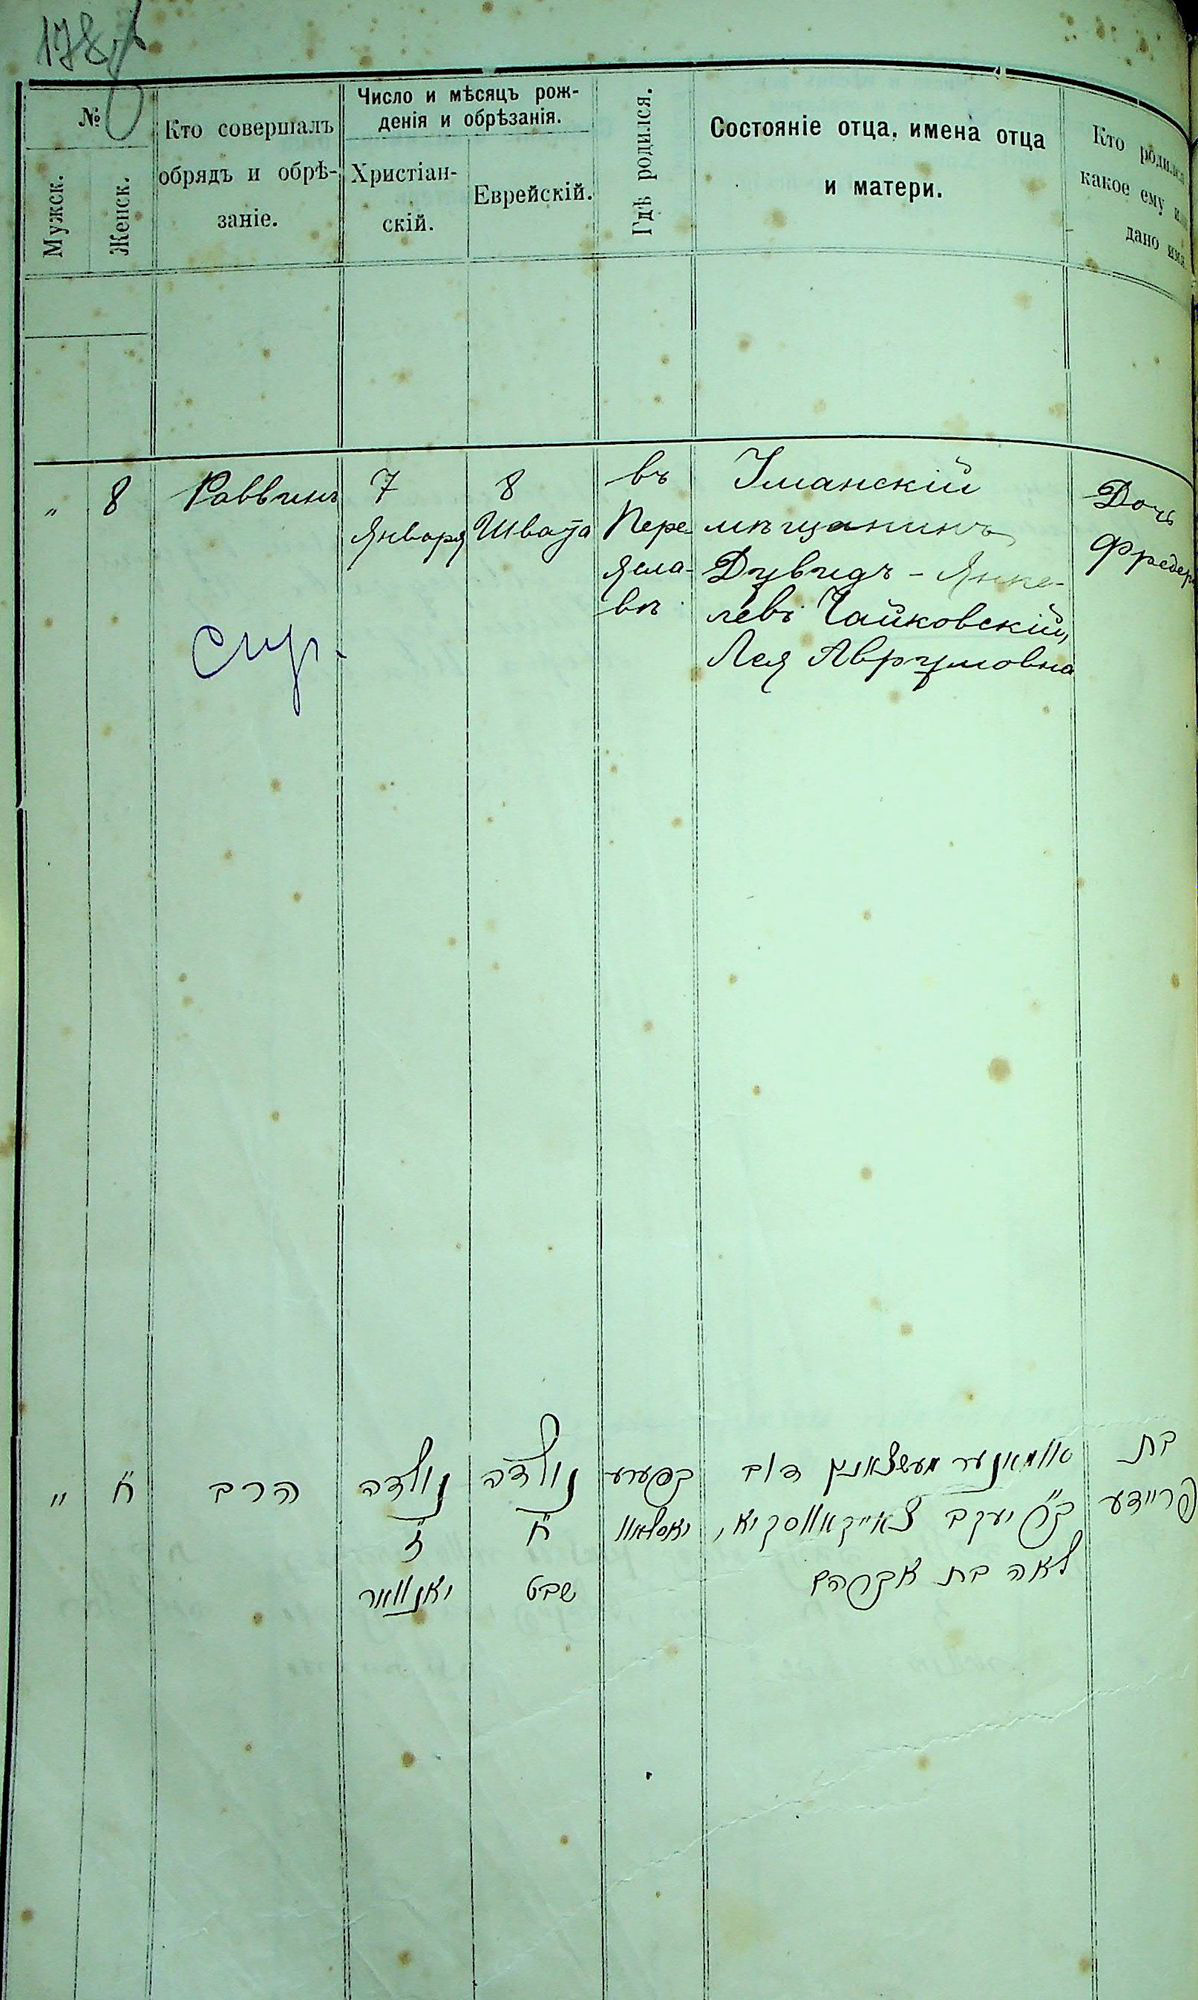 178
№
Мужск.
Женск.
Кто совершалъ
обрядъ и обрѣ-
заніе.
Число и мѣсяцъ рож-
денія и обрѣзанія.
Христіан-
скій.
Еврейскій.
Гдѣ родился.
Состояніе отца, имена отца
и матери.
Кто родился
какое ему
дано имя
„
8
Раввинъ
7
Января
8
Швата
въ
Пере
ясла-
вѣ
Уманскій
мѣщанинъ
Дувидъ - Янке-
левъ Чайковскій,
Лея Аврумовна
Дочь
Фредер
„
ח
הרב
נולדה
ז
יאנוואר
נולדה
ח
שבט
בפערע
יאסלאוו
אוומאנער מעשצאנין דוב
ב״ר יעקב צאייקאווסקיא,
לאה בת אברהם
בת
פריידע